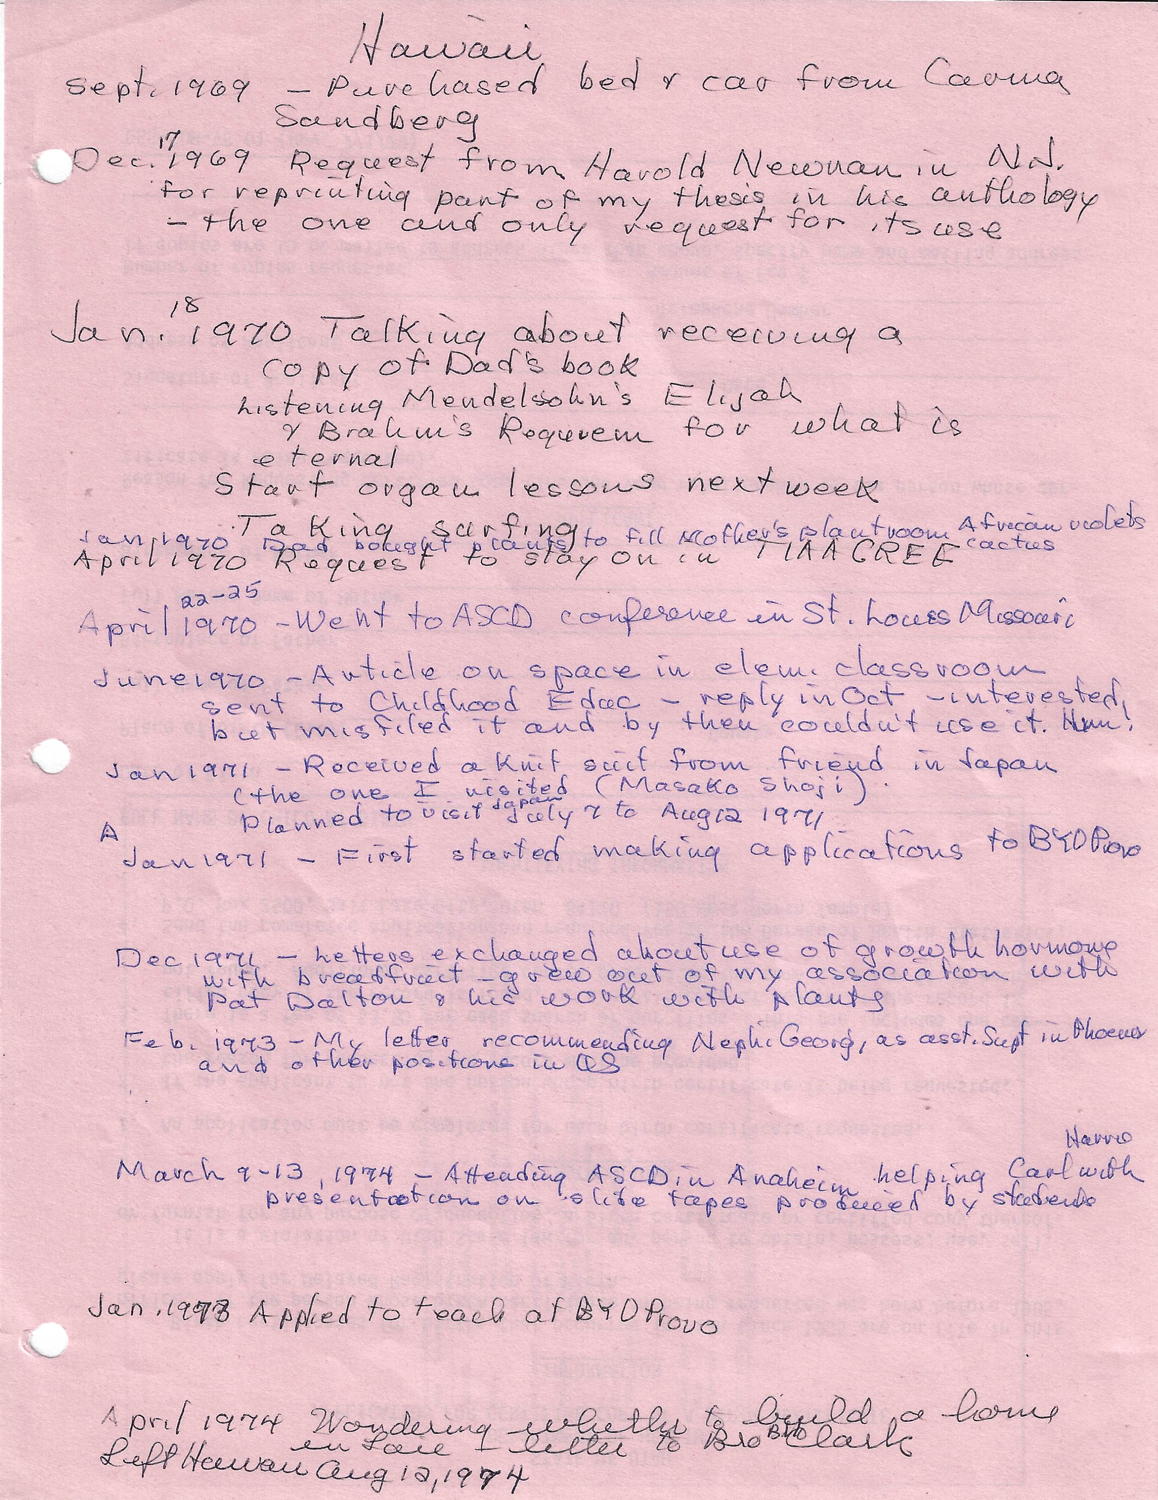 Hawaii
Sept. 1969 - Purchased bed & car from Carma
Sandberg
Dec. 17 1969 Request from Harold Newman in N.J.
for reprinting part of my thesis in his anthology
- the one and only request for its use
Jan. 18 1970 Talking about receiving a
copy of Dad's book
Listening Mendelsohn's Elijah
& Brahm's Requiem for what is
eternal
Start organ lessons next week
Taking surfing
Jan 1970 Dad bought plants to fill Mother's plantroom African violets cactus
April 1970 Request to stay on in TIAA CREF
April 22-25 1970 - Went to ASCD conference in St. Louis Missouri
June 1970 - Article on space in elem. classroom
sent to Childhood Educ - reply in Oct - interested,
but misfiled it and by then couldn't use it. Hmm!
Jan 1971 - Received a knit suit from friend in Japan
(the one I visited (Masako Shoji).
Planned to visit Japan July 7 to Aug 12 1971
A
Jan 1971 - First started making applications to BYU Provo
Dec 1971 - Letters exchanged about use of growth hormone
with breadfruit - grew out of my association with
Pat Dalton & his work with plants
Feb. 1973 - My letter recommending Nephi Georgi, as asst. Supt in Phoenix
and other positions in US
March 9-13, 1974 - Attending ASCD in Anaheim helping Carl Harris with
presentation on slide tapes produced by students
Jan. 1973 Applied to teach at BYU Provo
April 1974 Wondering whether to build a home
in Laie - letter to Bro Clark
Left Hawaii Aug 12, 1974